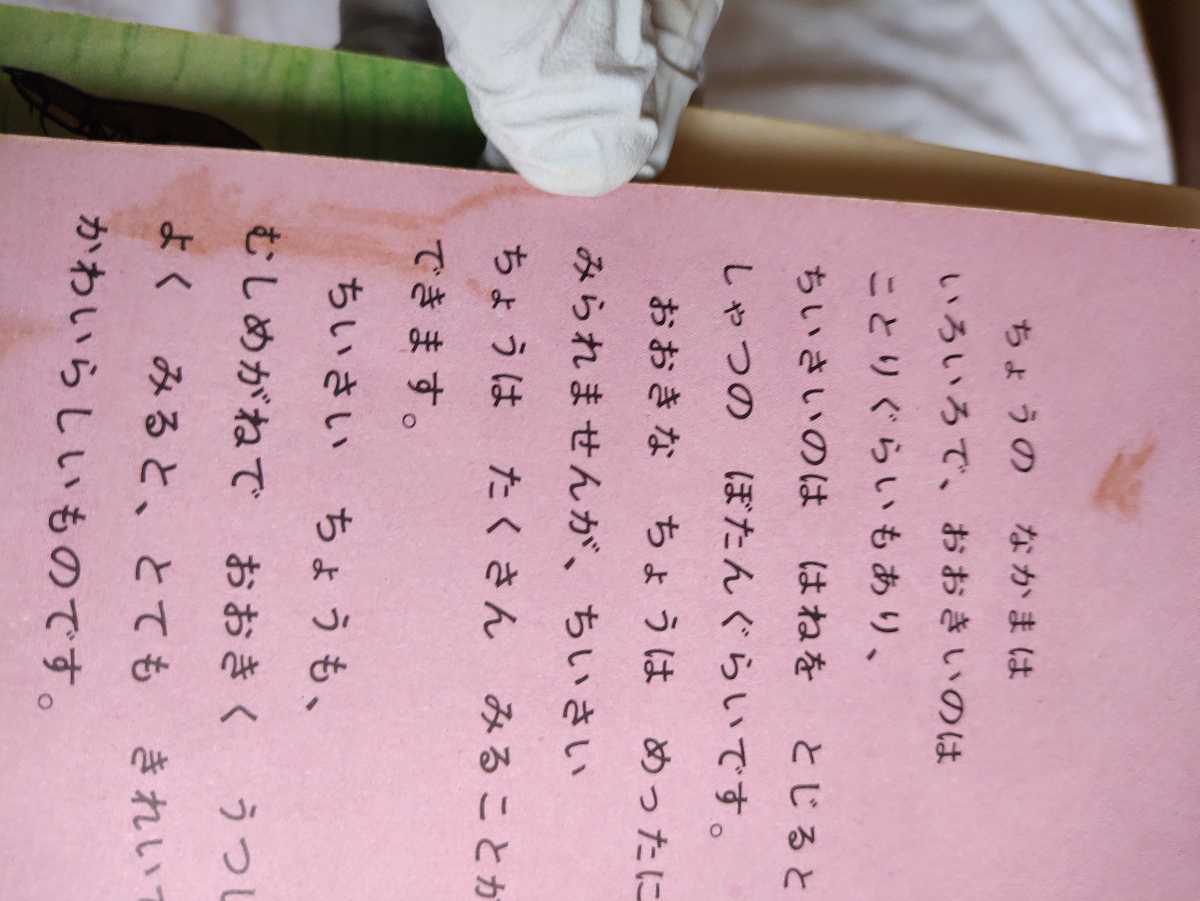 ちょうの なかまは
いろいろで、おおきいのは
ことりぐらいもあり、
ちいさいのは はねを とじると
しゃつの ぼたんぐらいです。
おおきな ちょうは めったに
みられませんが、ちいさい
ちょうは たくさん みることが
できます。
ちいさい ちょうも、
むしめがねで おおきく うつし
よく みると、とても きれいで
かわいらしいものです。